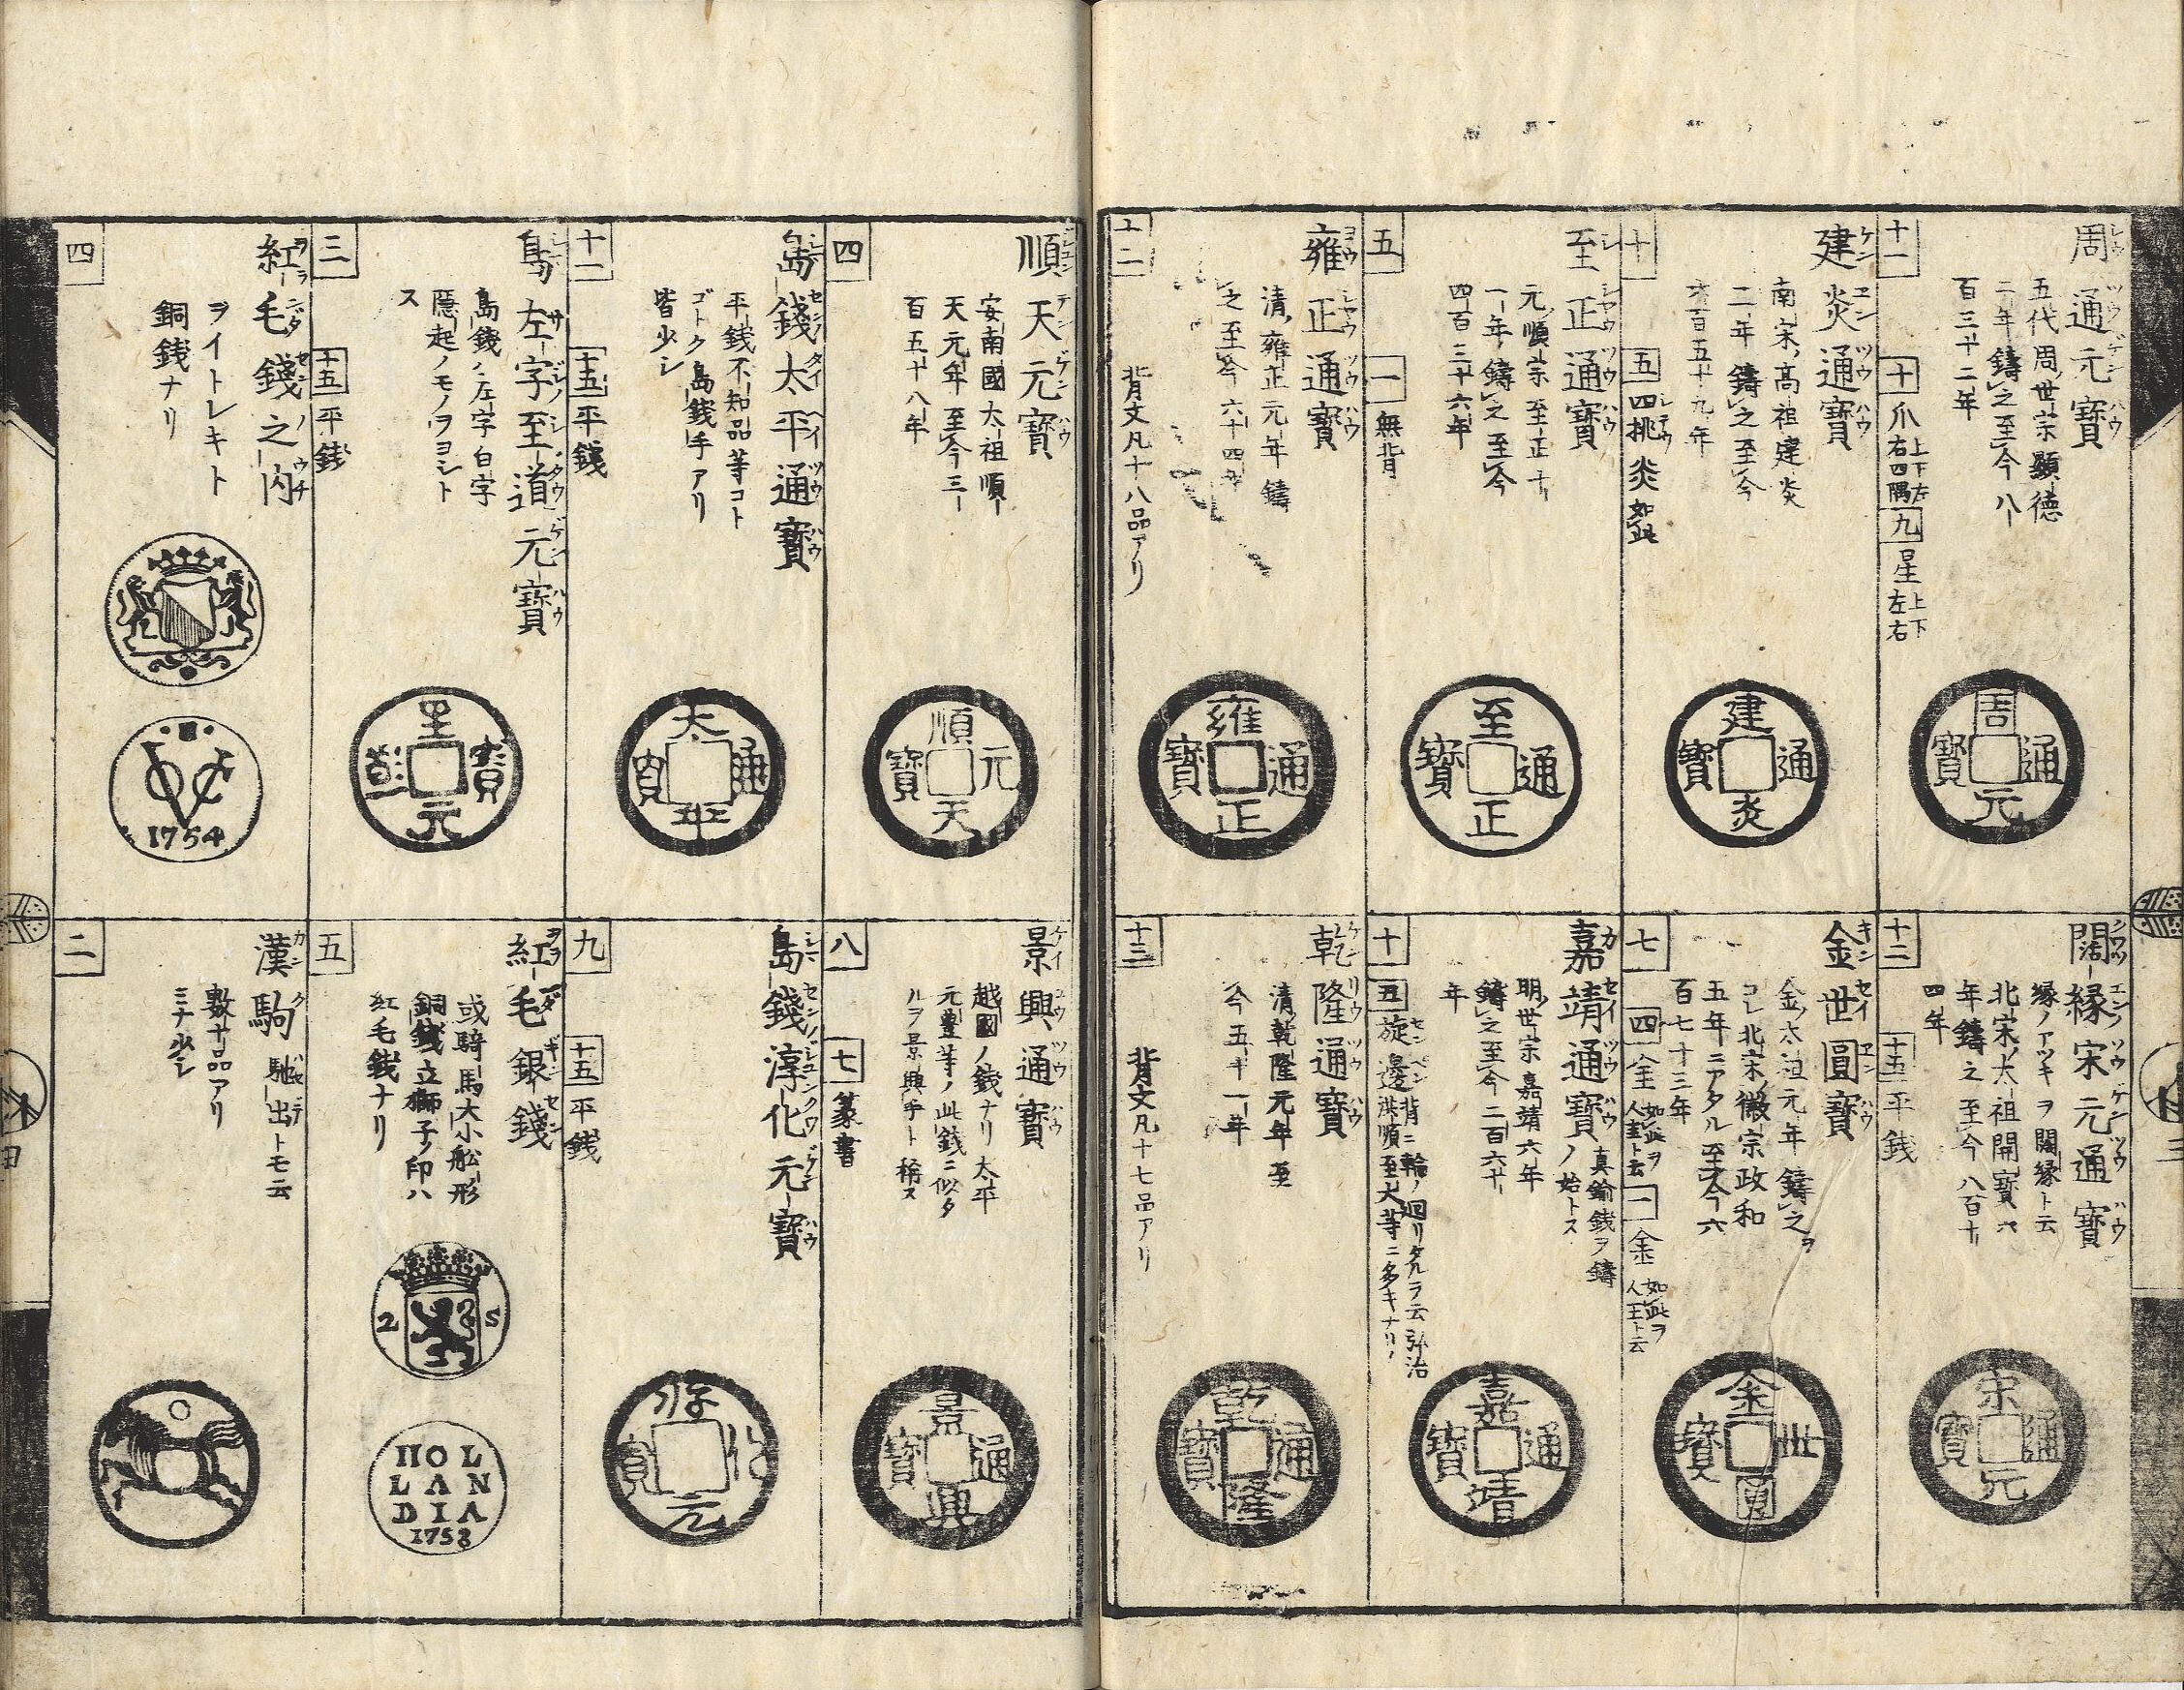 周通元寳
五代周ノ世宗顯徳
二年鑄之至今八
百三十二年
十一
十
爪上下左右四隅
九
星上下左右
周通元寳
建炎通寳
南宋ノ高祖建炎
二年鑄之至今
六百五十九年
十
五
四挑
炎如此
建炎通寳
至正通寳
元ノ順宗至正十
一年鑄之至今
四百三十六年
五
一
無背
至正通寳
雍正通寳
清ノ雍正元年鑄
之至今六十四年
背文凡十八品アリ
十二
雍正通寳
闊縁宋元通寳
縁ノアツキヲ闊縁ト云
北宋ノ太祖開寳六
年鑄之至今八百十
四年
十二
十五
平銭
宋元通寳
金世圓寳
金ノ太祖元年鑄之ヲ
コレ北宋ノ徽宗政和
五年ニアタル至今六
百七十三年
七
四
金如此ヲ人圭ト云
一
金如此ヲ人王ト云
金世圓寳
嘉靖通寳
真鍮銭ヲ鑄ノ始トス
明ノ世宗嘉靖六年
鑄之至今二百六十
年
十
五
旋邊
背ニ輪ノ廻リタルヲ云弘治
洪順至大等ニ多キナリ
嘉靖通寳
乾隆通寳
清ノ乾隆元年至
今五十一年
背文凡十七品アリ
十三
乾隆通寳
順天元寳
安南國太祖順
天元年至今三
百五十八年
四
順天元寳
島錢太平通寳
平銭不知品等コト
ゴトク島銭手アリ
皆少シ
十一
十五
平錢
太平通寳
島左字至道元寳
島銭ハ左字白字
隠起ノモノヲヨシト
ス
三
十五
平銭
至道元寳
紅毛錢之内
ヲイトレキト
銅銭ナリ
四
VOC
1754
景興通寳
越國ノ銭ナリ太平
元豊等ノ此銭ニ似タ
ルヲ景興手ト稱ス
八
七
篆書
景興通寳
島錢淳化元寳
九
十五
平銭
淳化元寳
紅毛銀錢
或騎馬大小舩ノ形
銅銭立獅子ノ印ハ
紅毛銭ナリ
五
2 S
HOL
LAN
DIA
1758
漢駒
馳出トモ云
數十品アリ
ミナ少シ
二